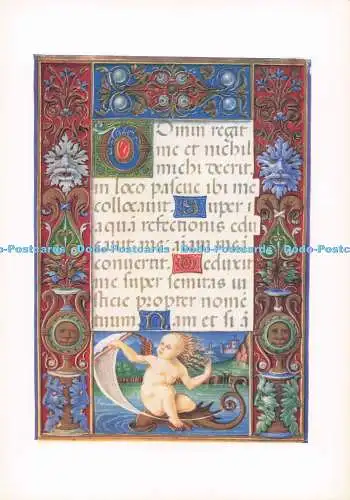 Domin regit
me et nichil
michi deerit.
in loco pascue ibi me
collocavit. Super
aquā refectionis edu
convertit. Deduxit
me super semitas iu
sticie propter nomē
Nam et si ā
Dodo-Postcards Dodo-Postcards Dodo-Postcards Dodo-Postcards